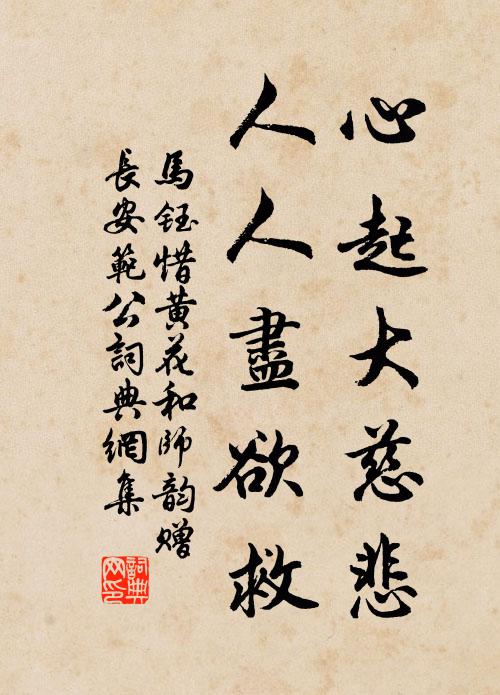 心起大慈悲
人人盡欲救
馬鈺惜黄花和師韵贈
長安範公詞典網集
詞典
网印